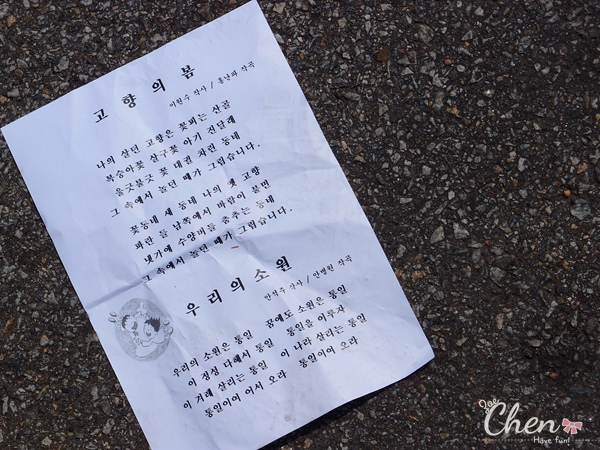 고향의봄
이원수 작사 / 홍난파 작곡
나의 살던 고향은 꽃피는 산골
복숭아꽃 살구꽃 아기 진달래
울긋불긋 꽃 대궐 차린 동네
그 속에서 놀던 때가 그립습니다.
꽃동네 새 동네 나의 옛 고향
파란 들 남쪽에서 바람이 불면
냇가에 수양버들 춤추는 동네
그 속에서 놀던 때가 그립습니다.
우리의소원
안석주 작사 / 안병원 작곡
우리의 소원은 통일 꿈에도 소원은 통일
이 정성 다해서 통일 통일을 이루자
이 겨레 살리는 통일 이 나라 살리는 통일
통일이여 어서 오라 통일이여 오라
Joe
Chen
Have fun!